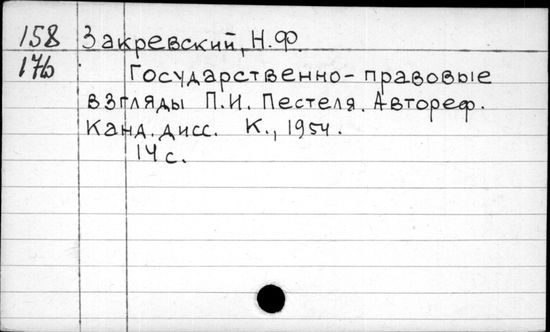 158 Закревский, Н.Ф.
176 Государственно-правовые
взгляды П.И. Пестеля. Автореф.
Канд. дисс. К., 1954.
14 с.